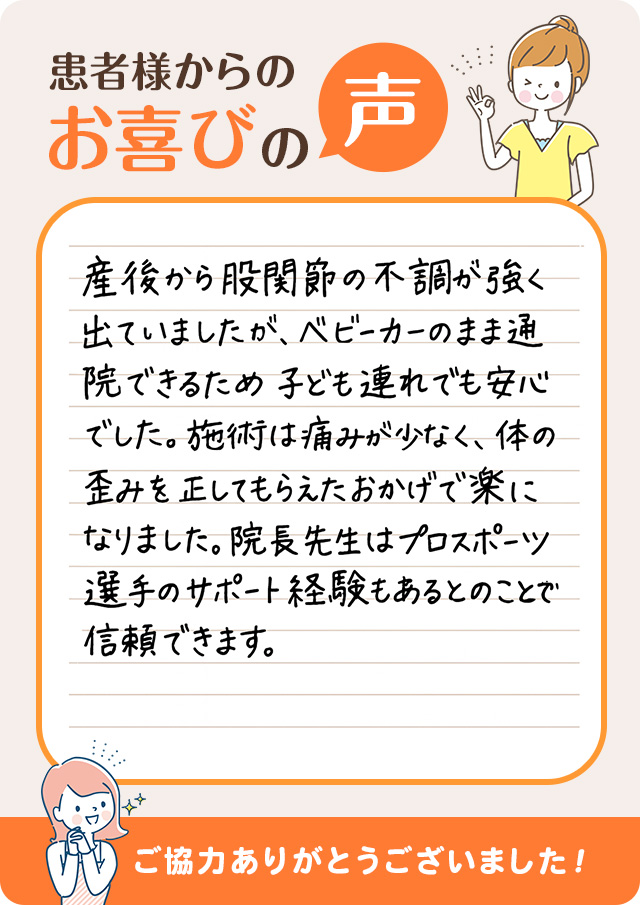 患者様からの
お喜びの声
産後から股関節の不調が強く
出ていましたが、ベビーカーのまま通
院できるため 子ども連れでも安心
でした。施術は痛みが少なく、体の
歪みを正してもらえたおかげで楽に
なりました。院長先生はプロスポーツ
選手のサポート経験もあるとのことで
信頼できます。
ご協力ありがとうございました！